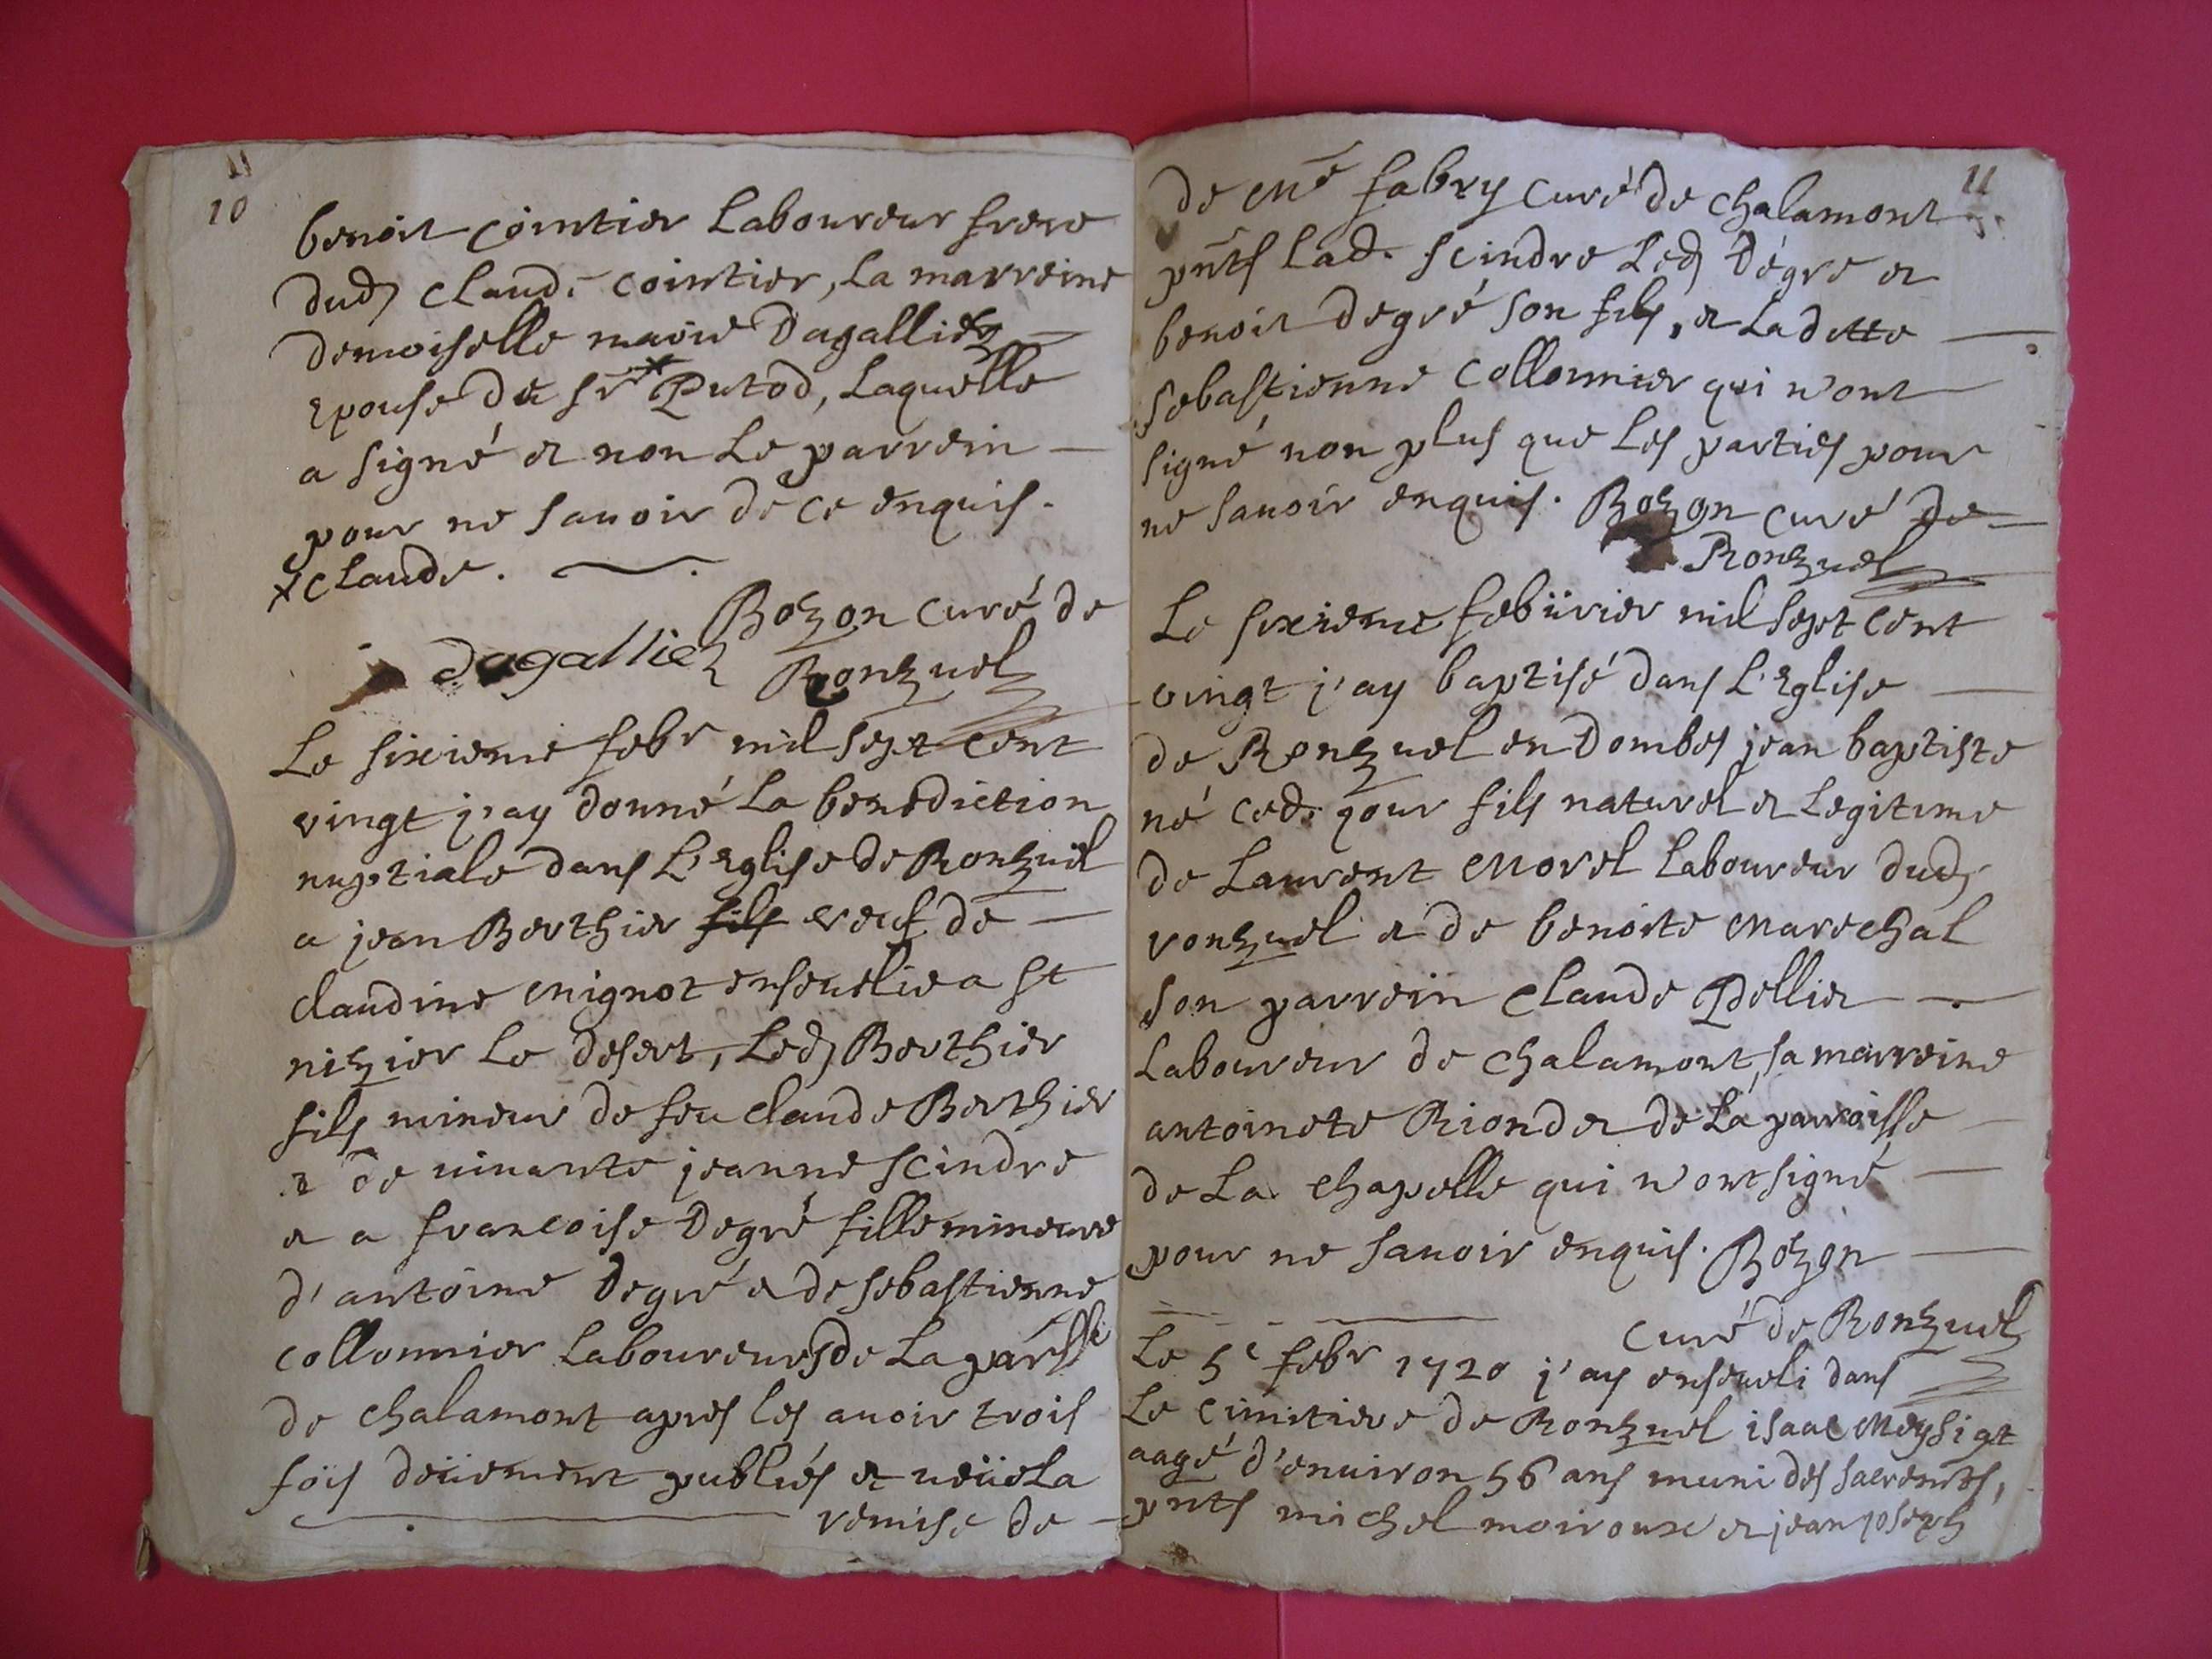 11
10
benoit Cointier Laboureur frere
dud. Claude Cointier, La marreine
demoiselle marie Dagallier
Epouse du Sr * Putod, Laquelle
a signé et non Le parrein
pour ne sauoir de ce enquis.
* Claude.
Bozon Curé de
Dagallier Ronzuel
Le sixieme febr mil sept Cent
vingt j'ay donné La benediction
nuptiale dans L'Eglise de Ronzuel
a jean Berthier fils veuf de
Claudine Mignot enseuelie a St
nizier Le desert, Led. Berthier
fils mineur de feu Claude Berthier
et de viuante jeanne Scindre
et a francoise Degré fille mineure
d'antoine Degré et de sebastienne
Collonnier Laboureurs de La parsse
de Chalamont apres les auoir trois
fois deüement publiés et ueüe La
remise de
11
de Me fabry Curé de Chalamont
pnts Lad. Scindre Led. Dégre et
benoit Degré son fils, et Laditte
Sebastienne Collonnier qui n'ont
signé non plus que Les parties pour
ne sauoir enquis. Bozon Curé de
Ronzuel
Le sixieme febürier mil sept Cent
vingt j'ay baptisé dans L'Eglise
de Ronzuel en Dombes jean baptiste
né Ced. jour fils naturel et Legitime
de Laurent Morel Laboureur dud.
ronzuel et de benoite Marechal
son parrein Claude Pellier
Laboureur de Chalamont, sa marreine
antoinete Riondet de La parroisse
de La Chapelle qui n'ont signé
pour ne sauoir enquis. Bozon
Curé de Ronzuel
Le 5e febr 1720 j'ay enseueli dans
Le Cimitiere de Ronzuel isaac Meysiat
aagé d'enuiron 56 ans muni des sacremts,
pnts michel moiroux et jean joseph